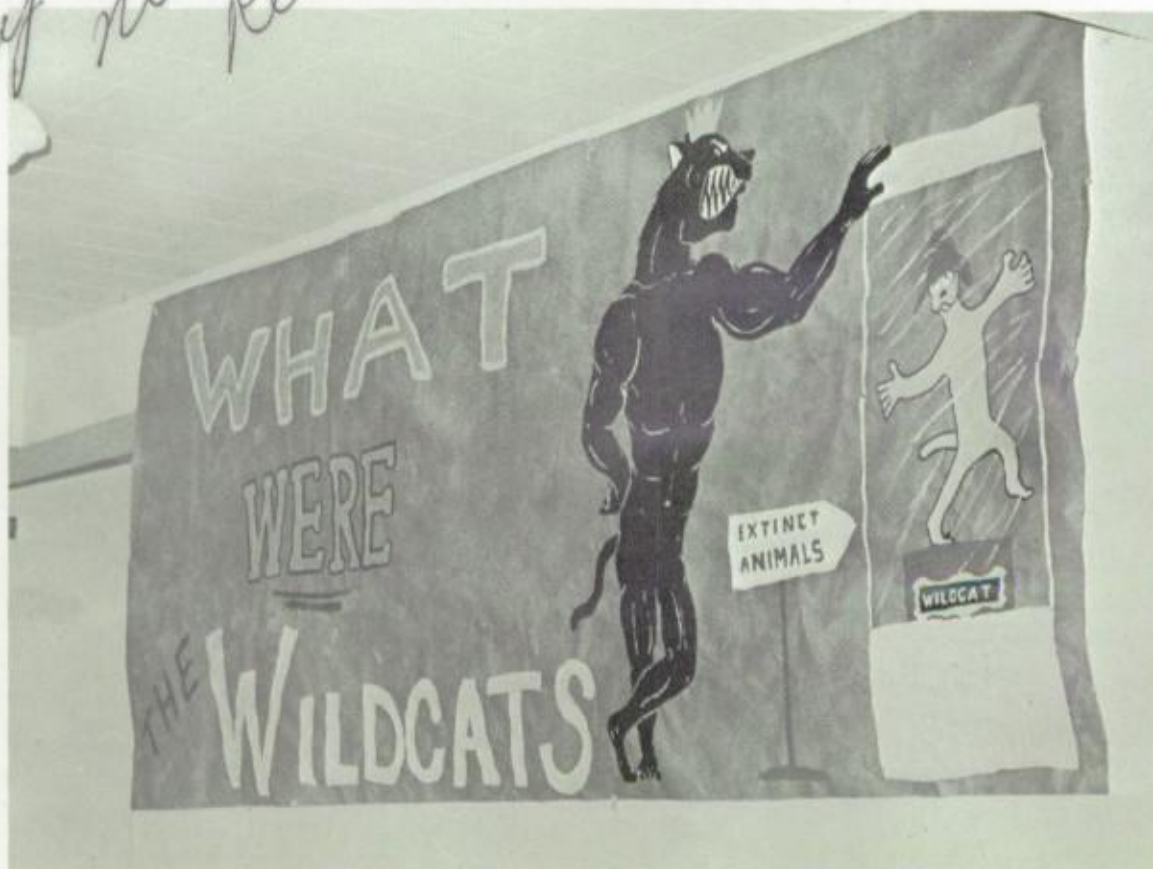 WHAT
WERE
THE WILDCATS
EXTINCT
ANIMALS
WILDCAT